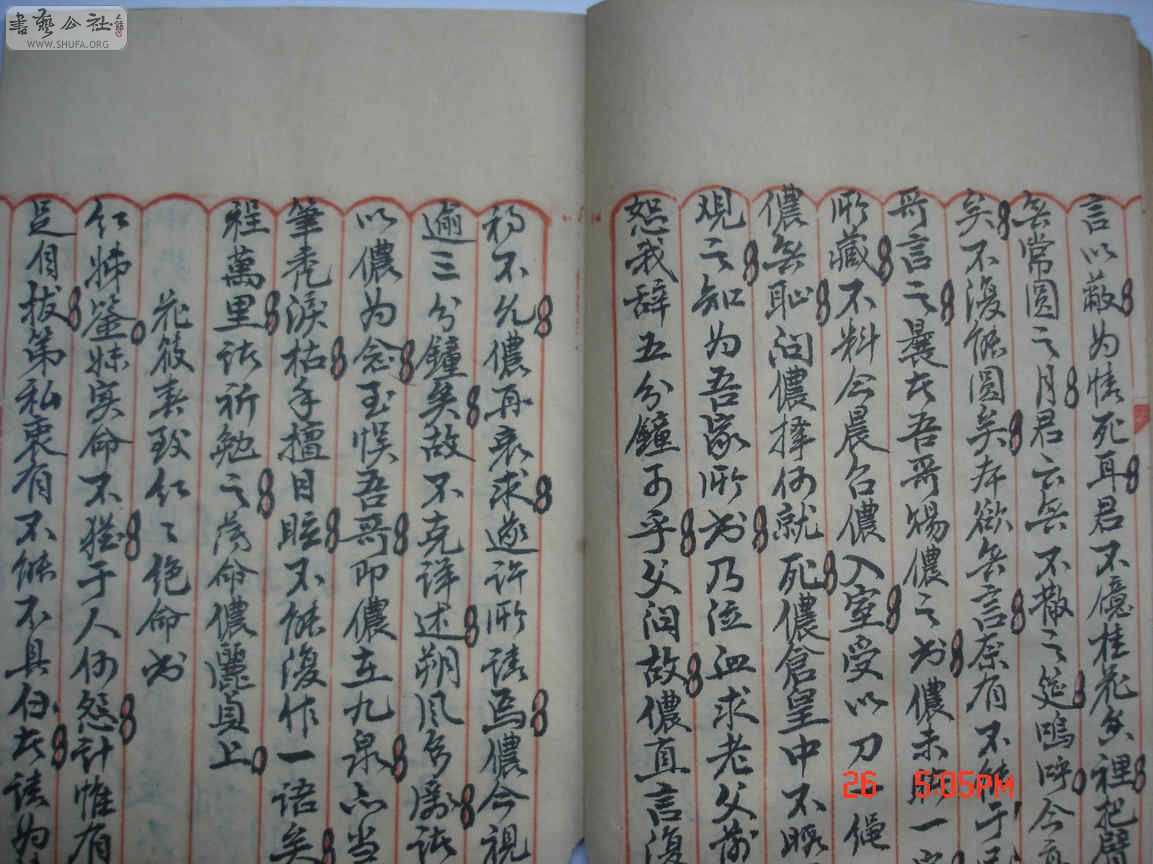 言以蔽為情死耳君不憶桂花香裡把臂
矣常圓之月君云無不散之筵嗚呼今
矣不復能圓矣本欲無言奈有不能于
哥言之者曩者吾哥賜儂之書儂未
所藏不料今晨召儂入室受以刀一繩
儂無恥問儂擇何就死儂倉皇中不暇
觀之知為吾家所為乃泣血求老父
恕我辞五分鐘可乎父问故儂直言復
初不允儂再哀求遂许所请焉儂今視
逾三分鐘矣故不克详述朔风多厲诙
以儂為念至悮吾哥即儂在九泉亦当
筆禿淚枯手擅目眩不能復作一语矣
程萬里诙祈勉之薄命儂麗貞上
花筱春致红之绝命书
红姊鉴妹实命不猶于人何怨计惟有
是自拔第私衷有不能不具白者诙为
書藝公社
WWW.SHUFA.ORG
26 5:05PM